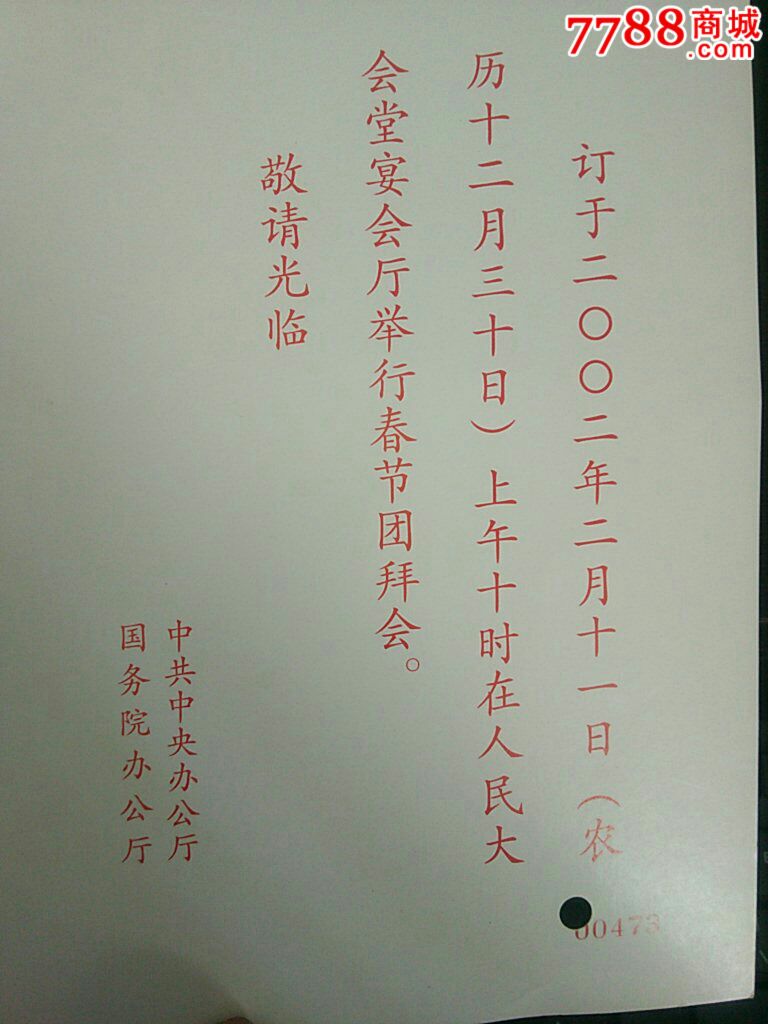 7788商城
.com
订于二〇〇二年二月十一日（农
历十二月三十日）上午十时在人民大
会堂宴会厅举行春节团拜会。
敬请光临
中共中央办公厅
国务院办公厅
00473